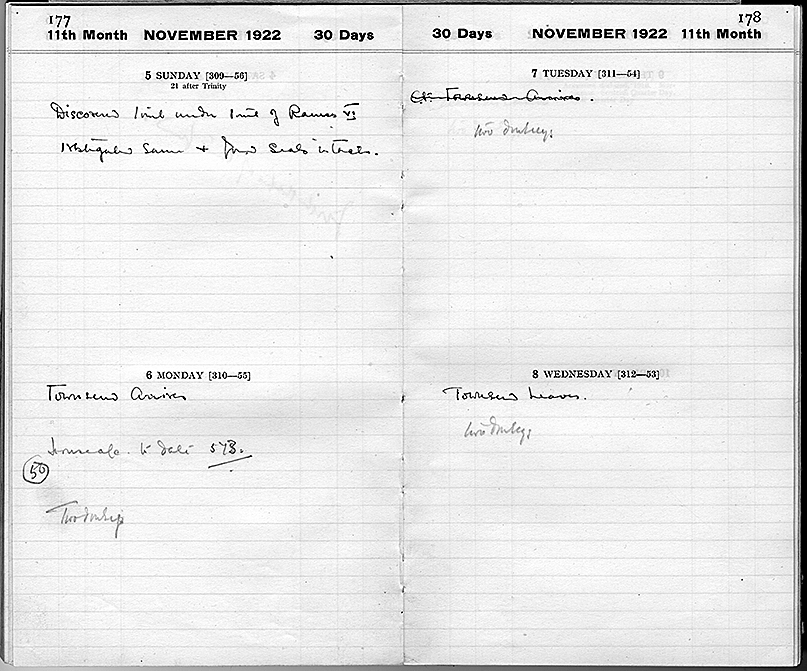 177
11th Month NOVEMBER 1922 30 Days
5 SUNDAY [309—56]
21 after Trinity
Discovered tomb under tomb of Ramses VI
Investigated same & found seals intact.
6 MONDAY [310—55]
Townsend Arrives
House a/c. to date 573.
50
Two donkeys
178
30 Days NOVEMBER 1922 11th Month
7 TUESDAY [311—54]
Townsend Arrives.
two donkeys
8 WEDNESDAY [312—53]
Townsend Leaves.
two donkeys